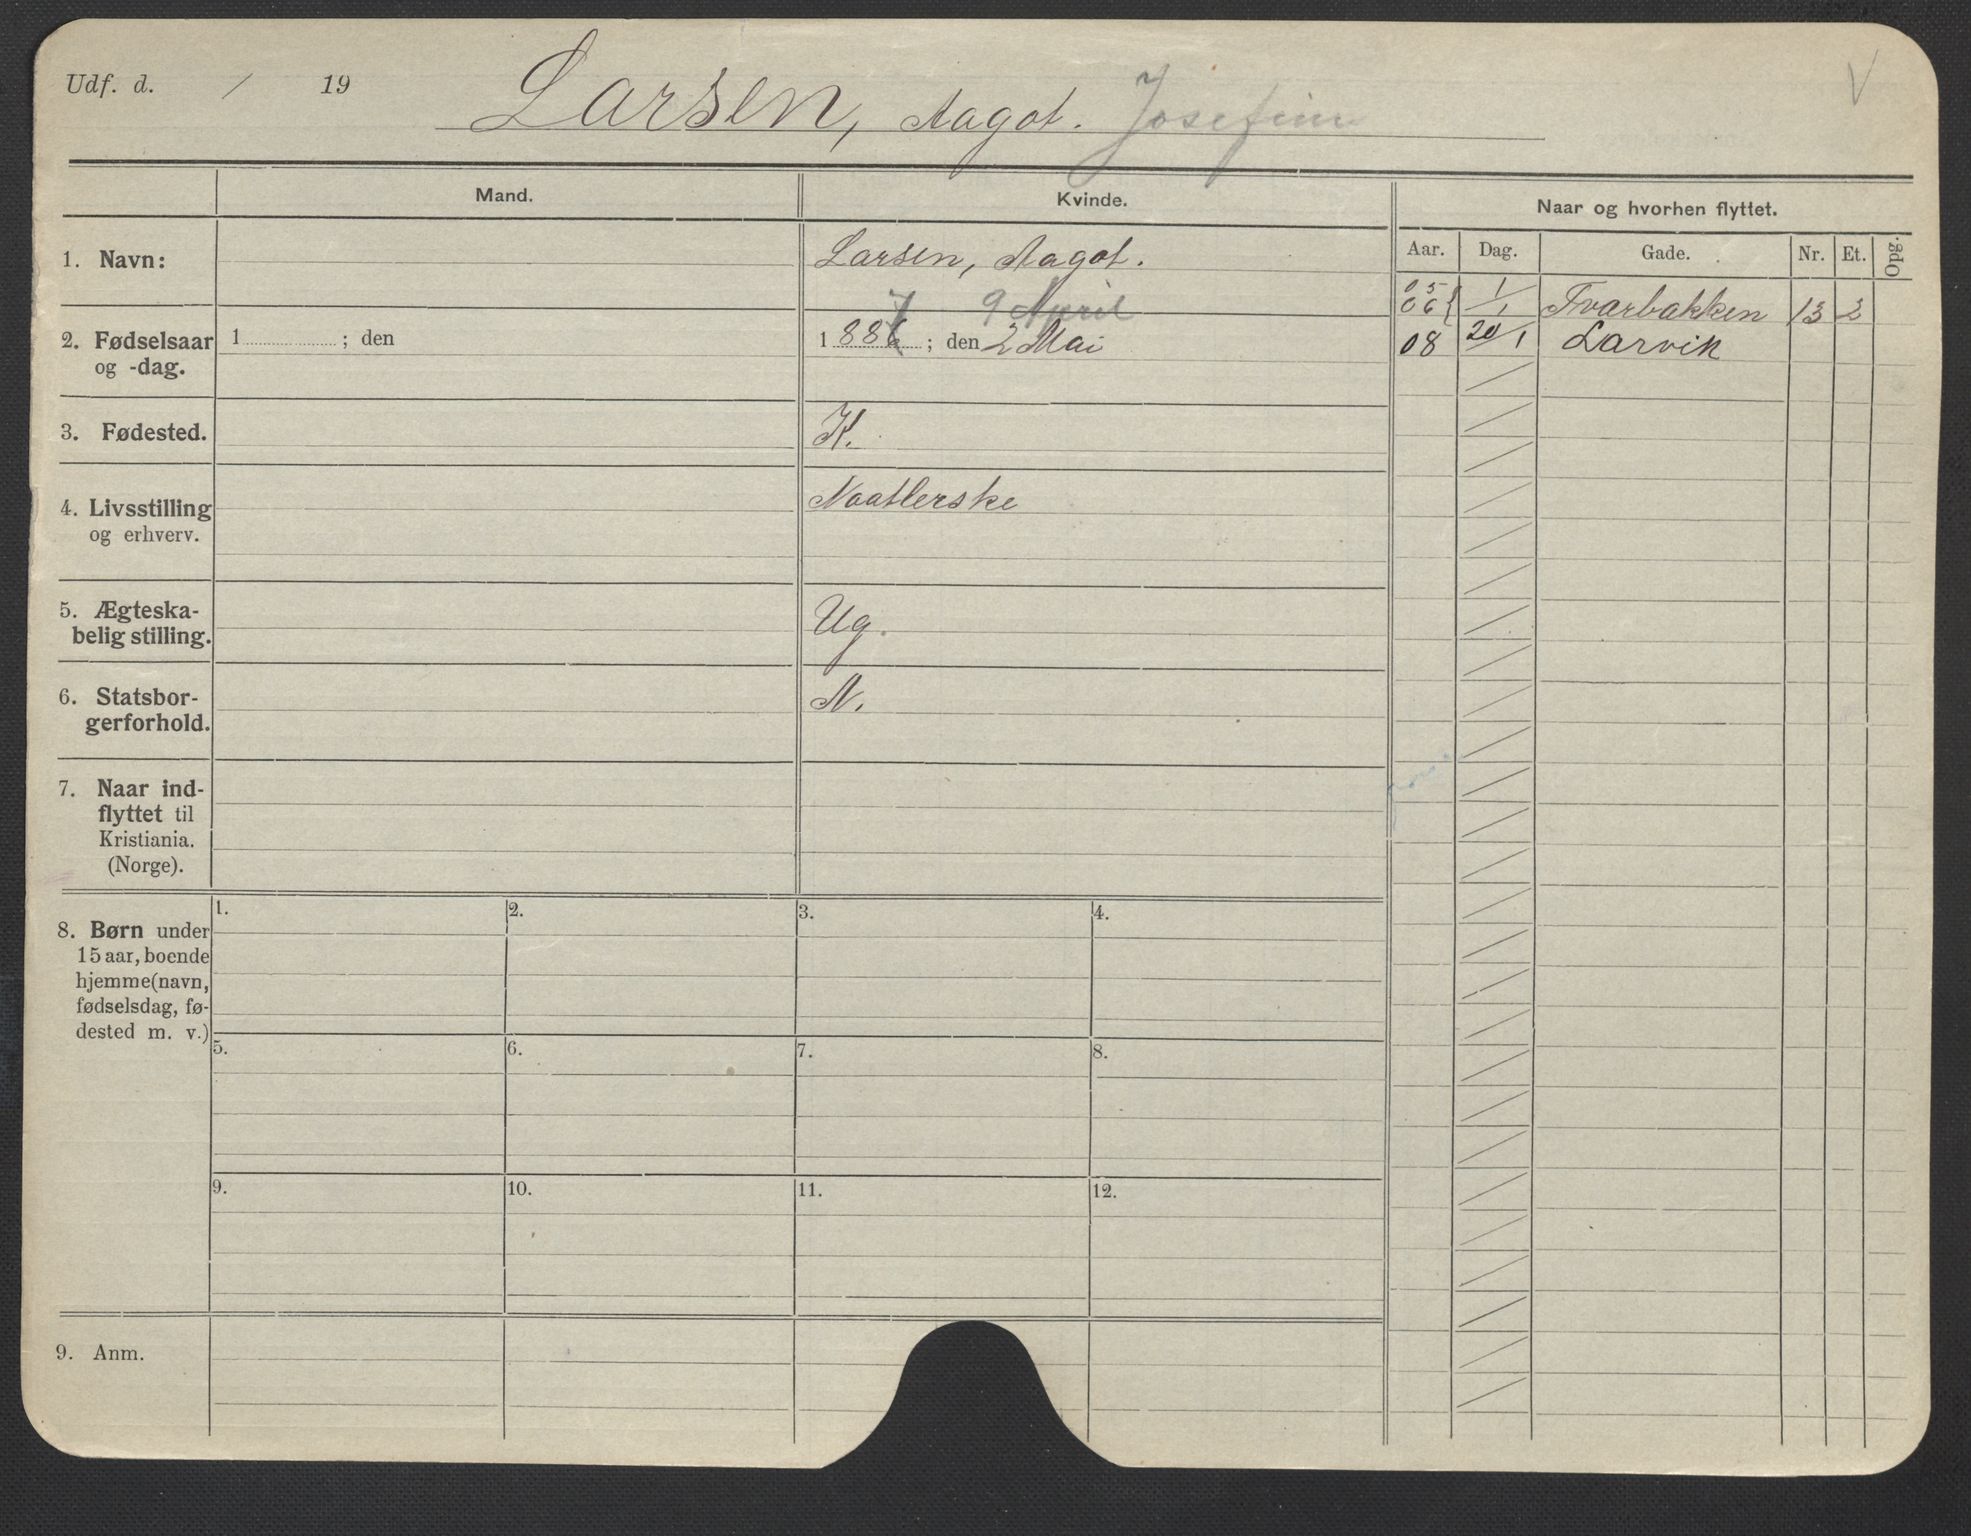 Udf. d. / 19
Larsen, Aagot. Josefine
Mand.
Kvinde.
Naar og hvorhen flyttet.
Aar. Dag. Gade. Nr. Et. Opg.
1. Navn:
Larsen, Aagot.
05
06 { 1/1 Tvarbakken 13 2
7 9 April
2. Fødselsaar
og -dag.
1 ; den
1 886 ; den 2 Mai
08 20/1 Larvik
3. Fødested.
K.
4. Livsstilling
og erhverv.
Naatlerske
5. Ægteska-
belig stilling.
Ug.
6. Statsbor-
gerforhold.
N.
7. Naar ind-
flyttet til
Kristiania.
(Norge).
8. Børn under
15 aar, boende
hjemme (navn,
fødselsdag, fø-
dested m. v.)
1. 2. 3. 4.
5. 6. 7. 8.
9. 10. 11. 12.
9. Anm.